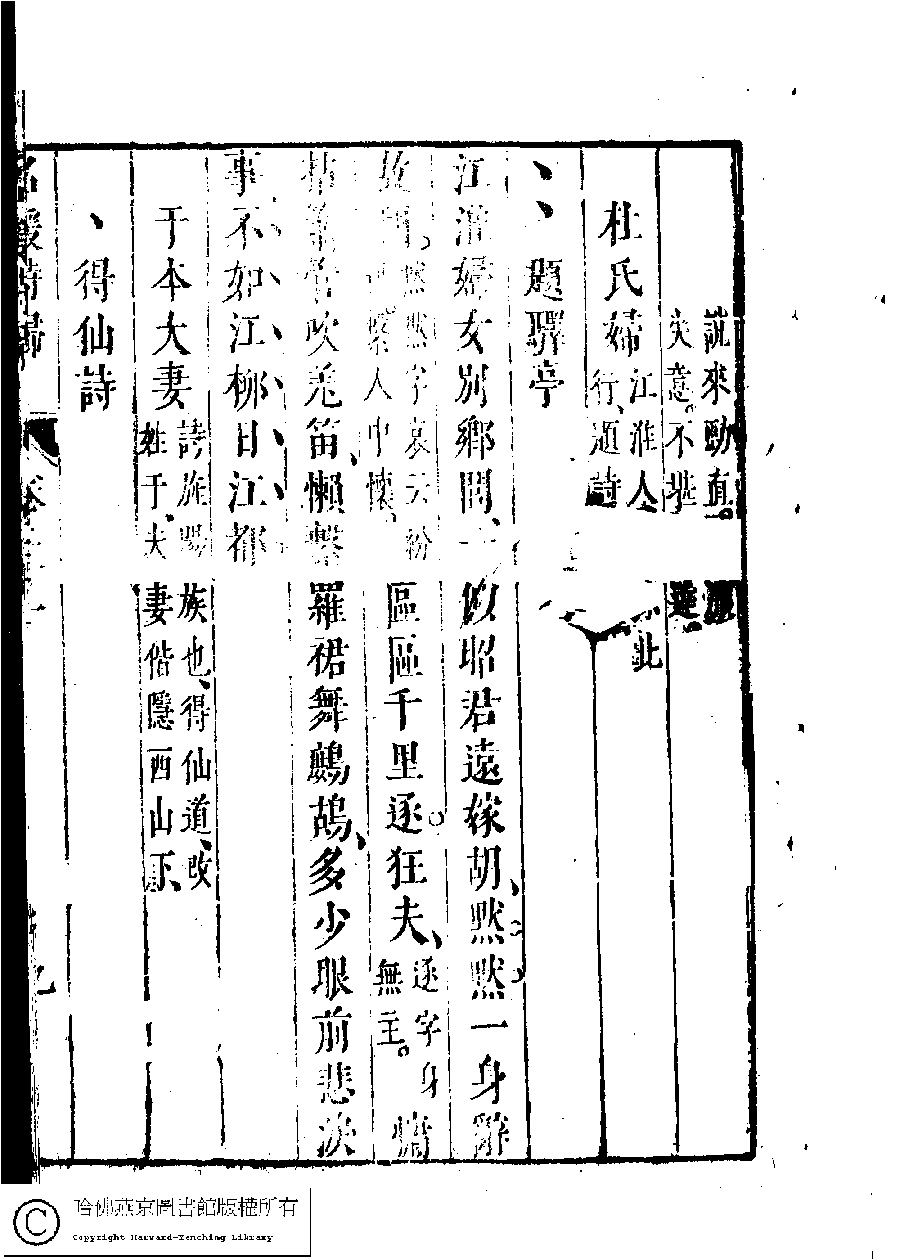 說來勁直。
失意。不堪
杜氏婦江淮人
行、題詩 此
、、題驛亭
江淮婦女別鄉閭、一似昭君遠嫁胡、默默一身辭
故國。默默字哀云紛
紮人中懷。區區千里逐狂夫、逐字身
無主。慵
拈 管吹羌笛、懶繫羅裙舞鷓鴣、多少眼前悲淚
事不如江柳日江都
于本大妻詩旌陽族也、得仙道、改
姓于、夫妻偕隱西山下、
、得仙詩
名媛詩歸
九
哈佛燕京圖書館版權所有
Copyright Harvard-Yenching Library